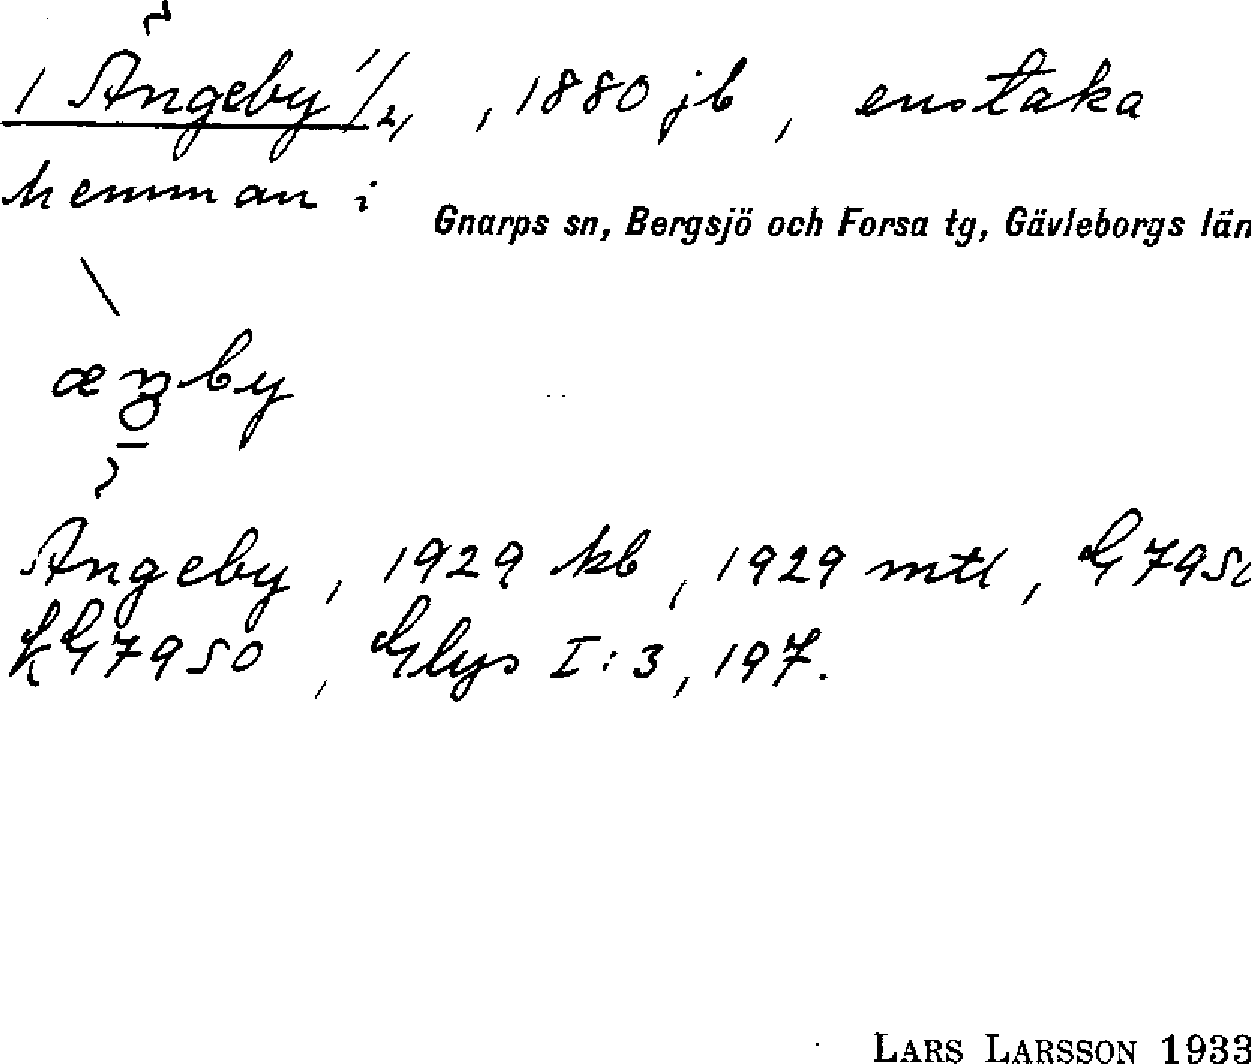 1 Ängeby 1/2, 1880 jb, enstaka
hemman i Gnarps sn, Bergsjö och Forsa tg, Gävleborgs län
Ängeby, 1929 kb, 1929 mtl, G 7950
kG 7950, Glys I:3, 197.
LARS LARSSON 1933